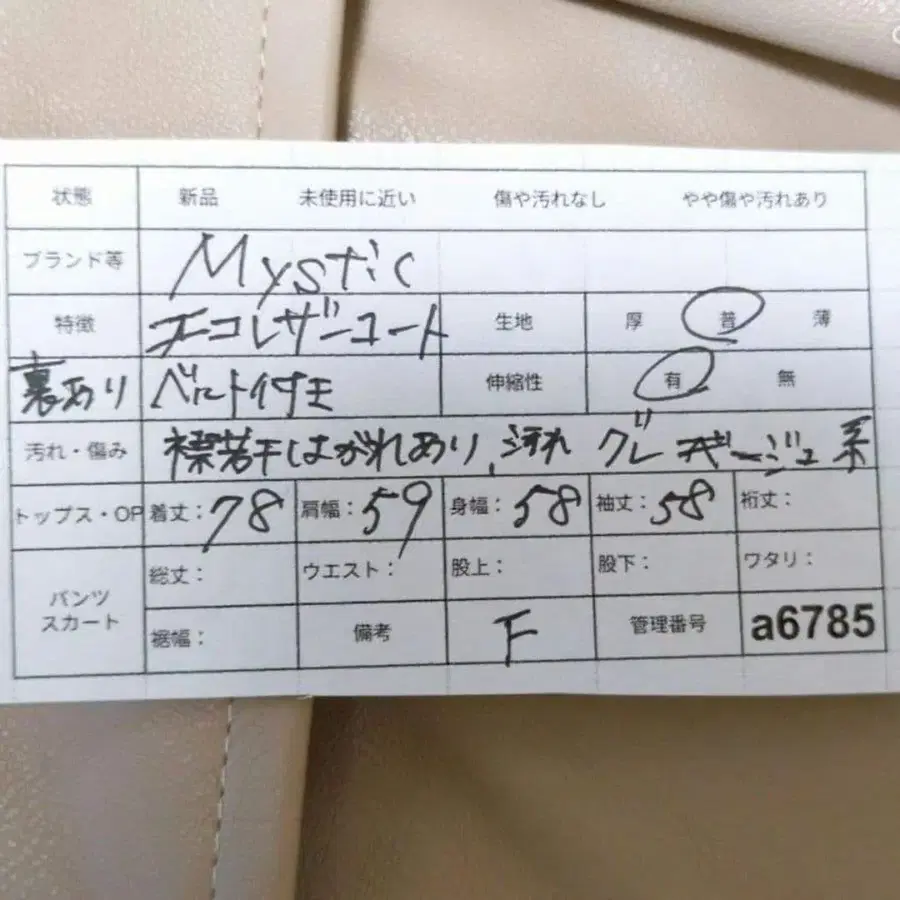 状態 新品 未使用に近い 傷や汚れなし やや傷や汚れあり
ブランド等 Mystic
特徴 エコレザーコート 生地 厚 普 薄
裏あり ベルト付き 伸縮性 有 無
汚れ・傷み 襟若干はがれあり、汚れ グレーベージュ系
トップス・OP 着丈：78 肩幅：59 身幅：58 袖丈：58 裄丈：
パンツ スカート 総丈： ウエスト： 股上： 股下： ワタリ：
裾幅： 備考 F 管理番号 a6785